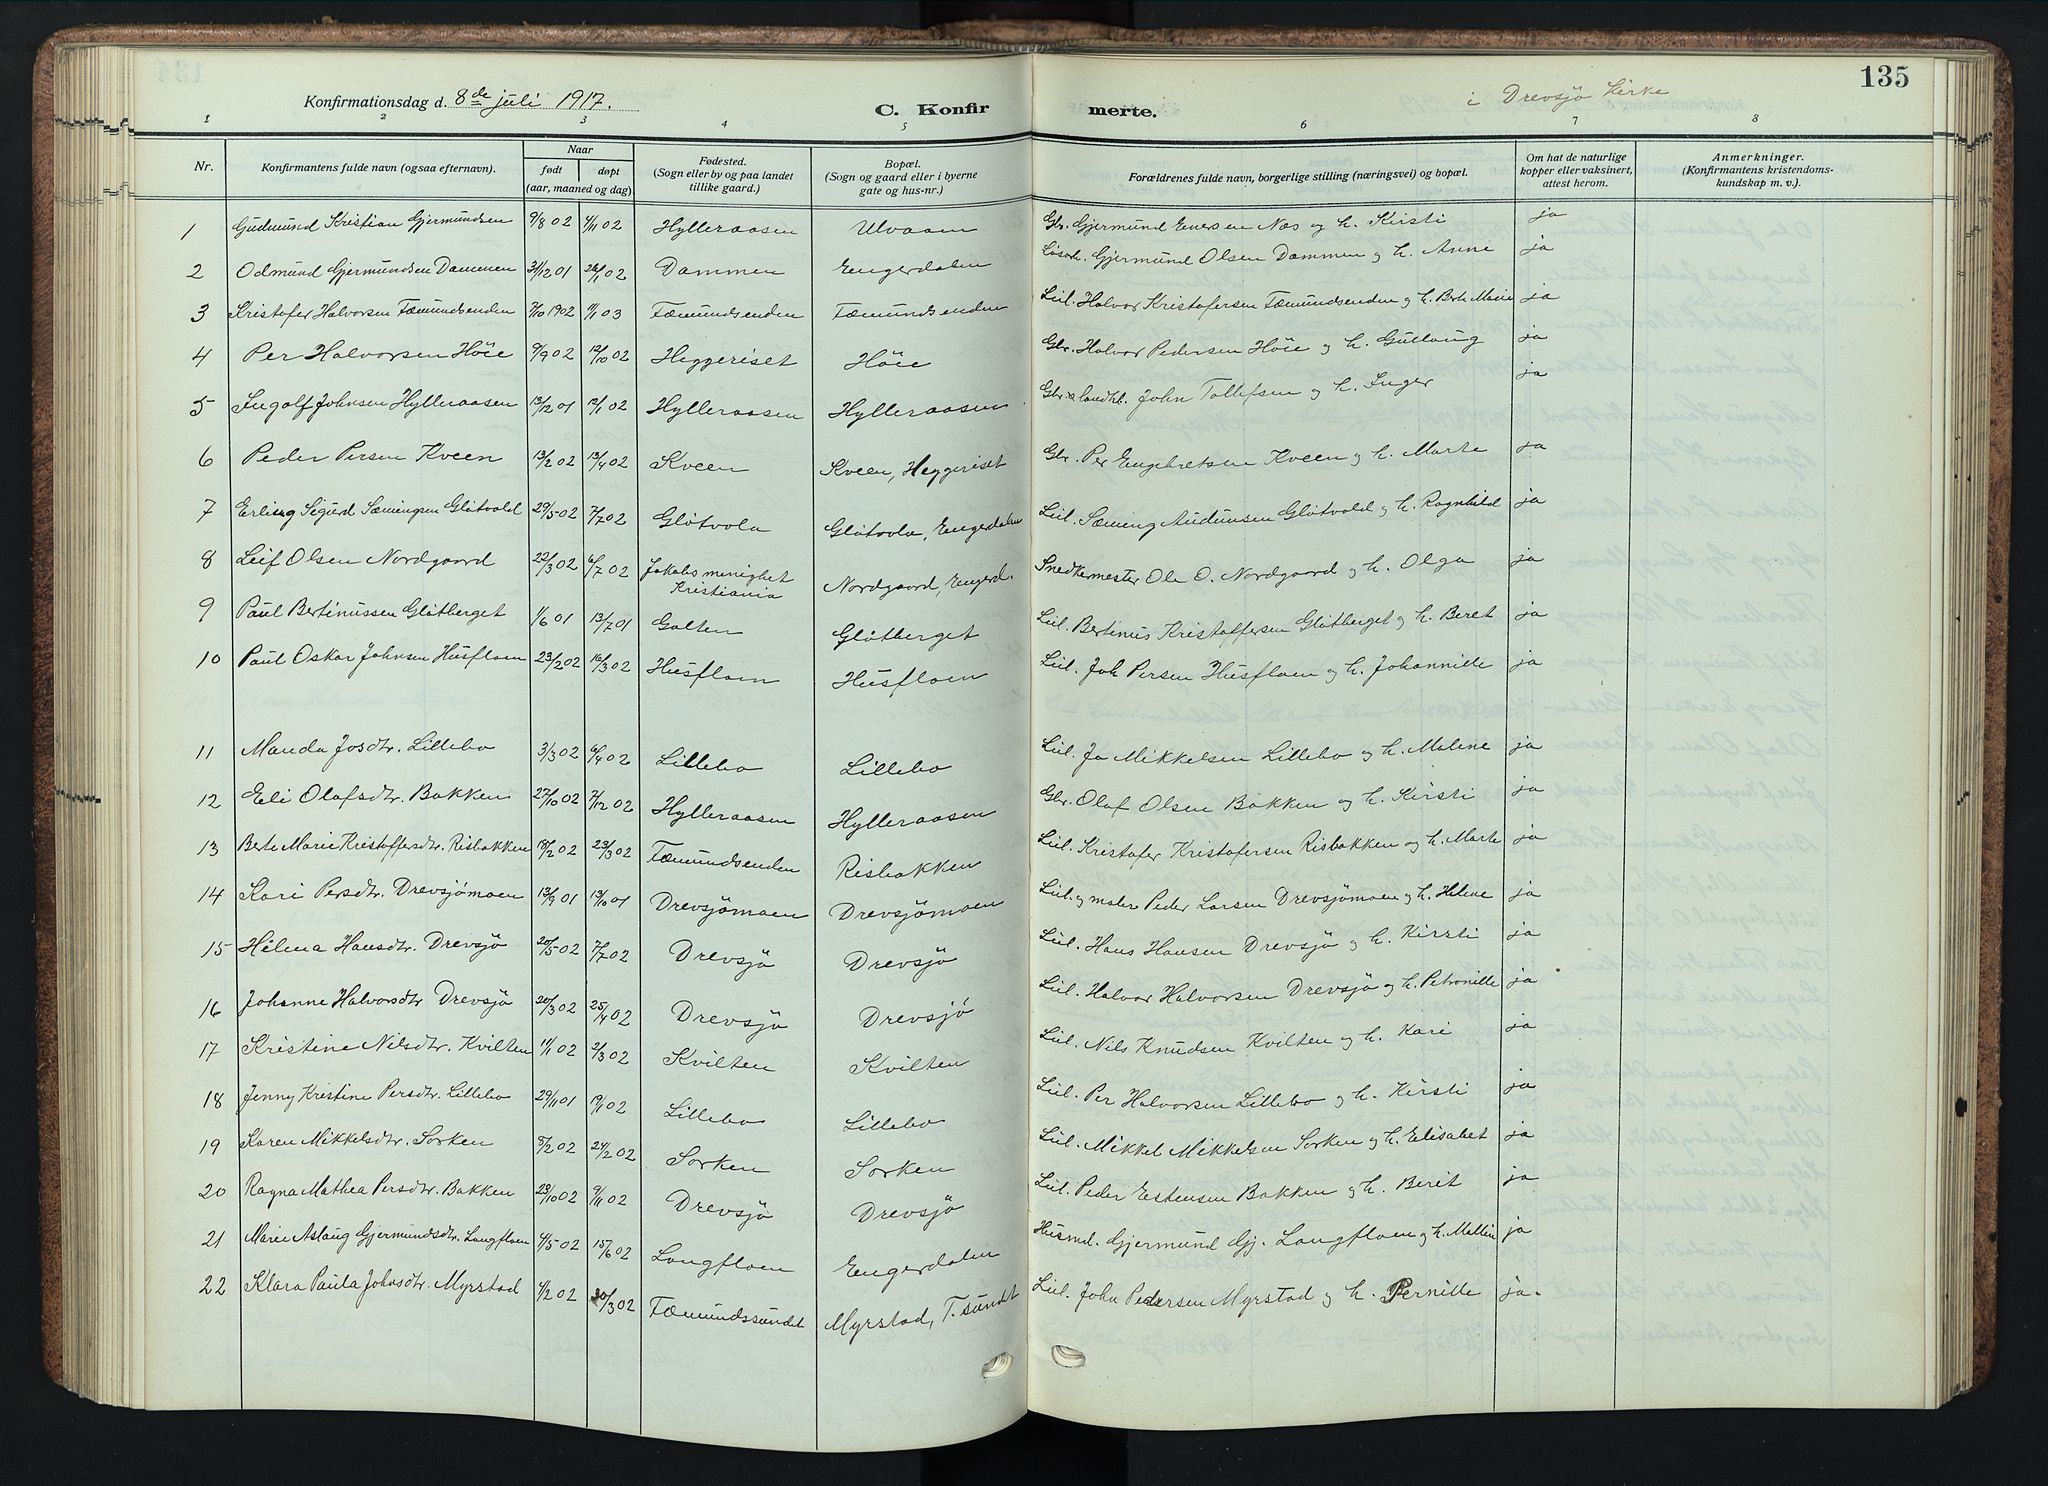 135
Konfirmationsdag d. 8de juli 1917.
C. Konfirmerte.
i Drevsjö kirke
1 2 3 4 5 6 7 8
Nr. | Konfirmantens fulde navn (ogsaa efternavn). | Naar født døpt (aar, maaned og dag) | Fødested. (Sogn eller by og paa landet tillike gaard.) | Bopæl. (Sogn og gaard eller i byerne gate og hus-nr.) | Forældrenes fulde navn, borgerlige stilling (næringsvei) og bopæl. | Om hat de naturlige kopper eller vaksinert, attest herom. | Anmerkninger. (Konfirmantens kristendomskundskap m. v.).
1 Gudmund Kristian Gjermundsen 9/8 02 4/11 02 Hylleraasen Ulvaaen Gbr. Gjermund Enersen Næs og h. Kirsti ja
2 Odmund Gjermundsen Dammen 31/12 01 26/1 02 Dammen Engerdalen Løsarb. Gjermund Olsen Dammen og h. Anne ja
3 Kristofer Halvorsen Fæmundsenden 7/10 1902 11/1 03 Fæmundsenden Fæmundsenden Leil. Halvor Kristofersen Fæmundsenden og h. Berte Marie ja
4 Per Halvorsen Höie 9/9 02 12/10 02 Heggeriset Höie Gbr. Halvor Pedersen Höie og h. Gullaug ja
5 Ingolf Johnsen Hylleraasen 13/12 01 12/1 02 Hylleraasen Hylleraasen Gbr. & landhl. John Tollefsen og h. Inger ja
6 Peder Persen Kveen 13/2 02 13/4 02 Kveen Kveen, Heggeriset Gbr. Per Engebretsen Kveen og h. Marte ja
7 Erling Sigurd Sæmingsen Glötvold 29/5 02 7/7 02 Glötvola Glötvola, Engerdalen Leil. Sæming Audunsen Glötvold og h. Ragnhild ja
8 Leif Olsen Nordgaard 22/3 02 6/7 02 Jakobs menighet Kristiania Nordgaard, Engerd. Snedkermester Ole O. Nordgaard og h. Olga ja
9 Paul Bertinussen Glötberget 1/6 01 13/7 01 Galten Glötberget Leil. Bertinus Kristoffersen Glötberget og h. Beret ja
10 Paul Oskar Johnsen Husfloen 23/2 02 16/3 02 Husfloen Husfloen Leil. Joh Persen Husfloen og h. Johannille ja
11 Manda Josdtr. Lillebo 3/3 02 6/4 02 Lillebo Lillebo Leil. Jo Mikkelsen Lillebo og h. Malene ja
12 Eli Olafsdtr. Bakken 27/10 02 7/12 02 Hylleraasen Hylleraasen Gbr. Olaf Olsen Bakken og h. Kirsti ja
13 Berte Marie Kristoffersdtr. Risbakken 18/2 02 23/3 02 Fæmundsenden Risbakken Leil. Kristofer Kristofersen Risbakken og h. Marte ja
14 Kari Persdtr. Drevsjömoen 13/9 01 13/10 01 Drevsjömoen Drevsjömoen Leil. og maler Peder Larsen Drevsjömoen og h. Helene ja
15 Hilma Hansdtr. Drevsjö 20/5 02 7/7 02 Drevsjö Drevsjö Leil. Hans Hansen Drevsjö og h. Kirsti ja
16 Johanne Halvorsdtr Drevsjö 20/3 02 25/4 02 Drevsjö Drevsjö Leil. Halvor Halvorsen Drevsjö og h. Petronille ja
17 Kristine Nilsdtr. Kvilten 11/1 02 2/3 02 Kvilten Kvilten Leil. Nils Knudsen Kvilten og h. Kari ja
18 Jenny Kristine Persdtr. Lillebo 29/11 01 19/1 02 Lillebo Lillebo Leil. Per Halvorsen Lillebo og h. Kirsti ja
19 Karen Mikkelsdtr. Sorken 5/2 02 24/2 02 Sorken Sorken Leil. Mikkel Mikkelsen Sorken og h. Elisabet ja
20 Ragna Mathea Persdtr. Bakken 23/10 02 9/11 02 Drevsjö Drevsjö Leil. Peder Estensen Bakken og h. Berit ja
21 Marie Aslaug Gjermundsdtr. Langfloen 4/5 02 15/6 02 Langfloen Engerdalen Husmd. Gjermund Gj. Langfloen og h. Mallin ja
22 Klara Paula Johnsdtr. Myrstad 4/2 02 30/3 02 Fæmundssundet Myrstad, F. sundet Leil. John Pedersen Myrstad og h. Pernille ja.